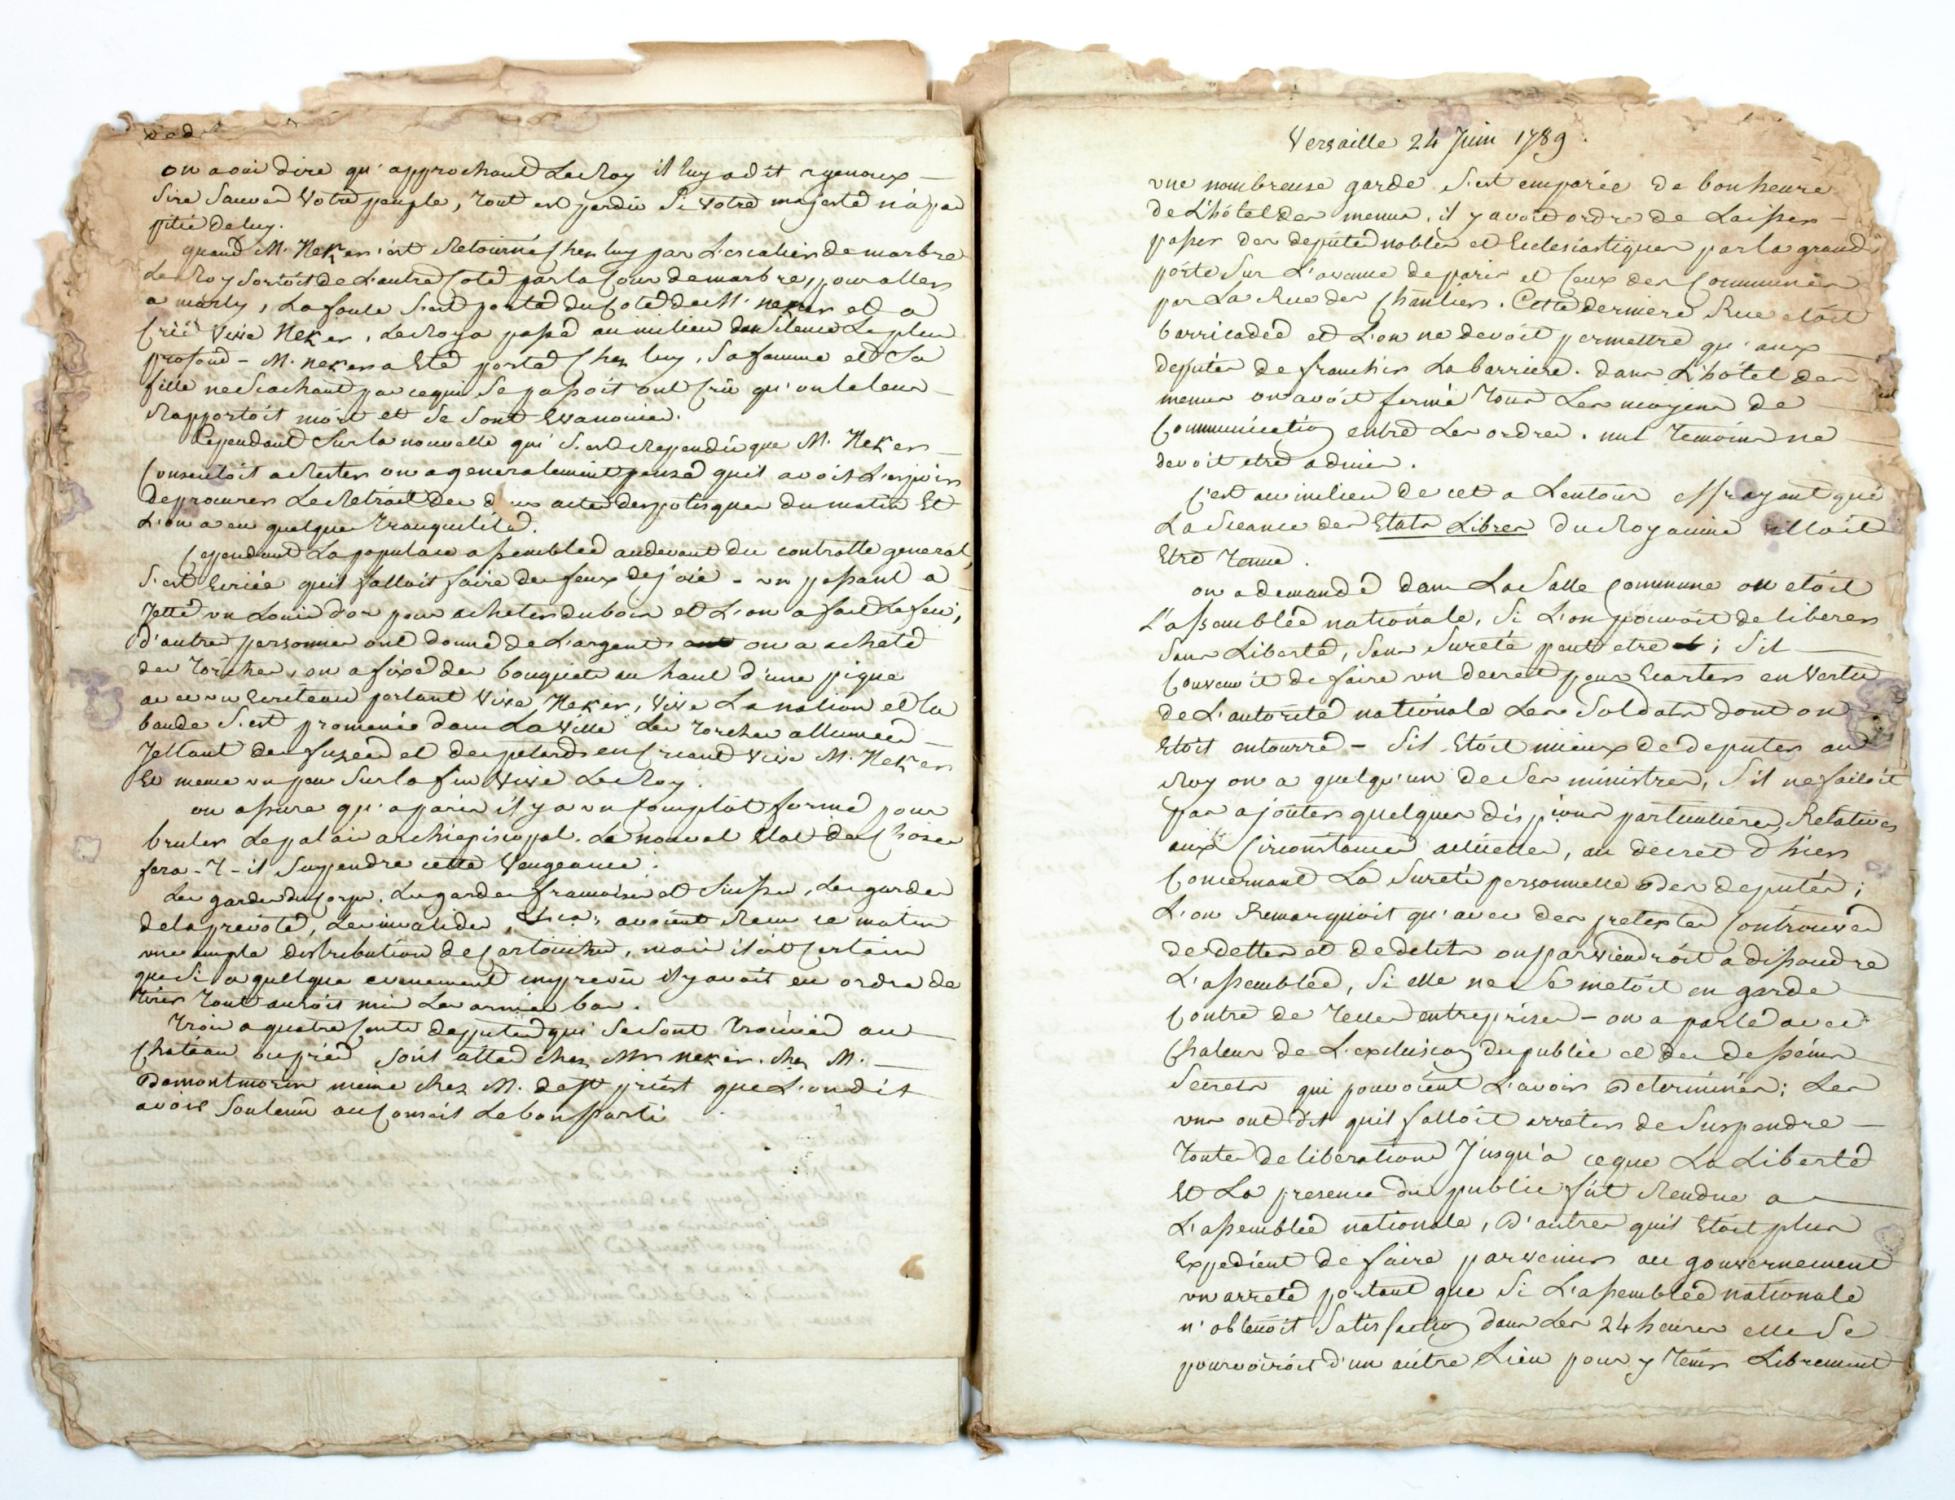 on a oui dire qu'approchant Le Roy il luy a dit a genoux
Sire Sauvez Votre peuple, tout est perdu Si Votre majesté n'a pas
pitié de luy.
quand M. Neker s'est Retourné chez luy par L'escalier de marbre
Le Roy Sortoit de L'autre Coté par la Cour de marbre, pour aller
a marly, La foule S'est porté du Coté de M. neker et a
Crié Vive Neker, Le Roy a passé au milieu du Silence Le plus
profond - M. neker a Eté porté Chez luy, Sa femme et Sa
fille ne Scachant pas ce qui Se passoit ont Crû qu'on le leur
Rapportoit mort et Se Sont Evanouies.
Cependant Sur la nouvelle qui S'est Rependûe que M. Neker
Consentoit a Rester on a generalement pensé quil avoit L'espoir
de procurer Le Retrait des deux actes despotiques du matin Et
L'on a eu quelque tranquilité.
Cependant La populace assemblée au devant du controlle general,
S'est Ecriée quil falloit faire des feux de joie - un passant a
Jetté un Louis d'or pour acheter du bois et L'on a fait Le feu,
d'autres personnes ont donné de L'argent, on a acheté
des torches, on a fixé des bouquets au haut d'une pique
avec un Ecriteau portant Vive Neker, Vive La nation et la
bande S'est promenée dans La Ville Les torches allumées
Jettant des fusées et des petards en Criant Vive M. Neker
Et meme un peu Sur la fin Vive Le Roy.
on assure qu'a paris il y a un Complot formé pour
bruler Le palais archiepiscopal. Le nouvel Etat des Choses
fera-T-il Suspendre cette Vengeance.
Les gardes du Corps. Les gardes francaises et Suisses, Les gardes
de la prevoté, Les invalides, avoient Recu ce matin
une ample distribution de Cartouches, mais il est Certain
que Si a quelque evenement imprevû il y avoit eu ordre de
tirer tout auroit mis Les armes bas.
trois a quatre Cents deputés qui Se Sont trouvés au
Chateau Sont allés chez Mr neker. chez M.
De montmorin meme chez M. de St priest que L'on dit
avoir Soutenû au Conseil Le bon parti
Versaille 24 Juin 1789.
une nombreuse garde S'est emparée de bonheure
de L'hôtel des menus, il y avoit ordre de Laisser
passer des deputés nobles et Ecclesiastiques par la grande
porte Sur L'avenue de paris et Ceux des Communes
par La Rue des Chantiers. Cette derniere Rue etoit
barricadée et L'on ne devoit permettre qu'aux
deputés de franchir La barriere. dans L'hôtel des
menus on avoit fermé tous Les moyens de
Communication entre Les ordres. nul temoins ne
devoit etre admis.
C'est au milieu de cet a Lentour effrayant que
La Sceance des Etats Libres du Royaume alloit
Etre tenue.
on a demandé dans La Salle commune ou etoit
L'assemblée nationale, Si L'on pouvoit deliberer
Sans Liberté, Sans Sureté peut etre; Sil
Convenoit de faire un decret pour Ecarter en Vertu
de L'autorité nationale Les Soldats dont on
Etoit entouré - Sil Etoit mieux de deputer au
Roy ou a quelqu'un de Ses ministres, S'il ne failoit
pas ajouter quelques particulieres, Relatives
aux Circonstances actuelles, au decret d'hier
Concernant La Sureté personnelle des deputés;
L'on Remarquoit qu'avec des pretextes Controuvés
de dettes et de delits on parviendroit a dissoudre
L'assemblée, Si elle ne Se metoit en garde
Contre de telles entreprises - on a parlé avec
Chaleur de L'exclusion du public et des desseins
Secrets qui pouvoient L'avoir determinés; Les
uns ont dit quil falloit arreter de Suspendre
toutes deliberations Jusqu'a ceque La Liberté
Et La presence du public fut Rendue a
L'assemblée nationale, D'autres quil Etoit plus
Expedient de faire parvenir au gouvernement
un arreté portant que Si L'assemblée nationale
n'obtenoit Satisfaction dans Les 24 heures elle Se
pourvoiroit d'un autre Lieu pour y tenir Librement